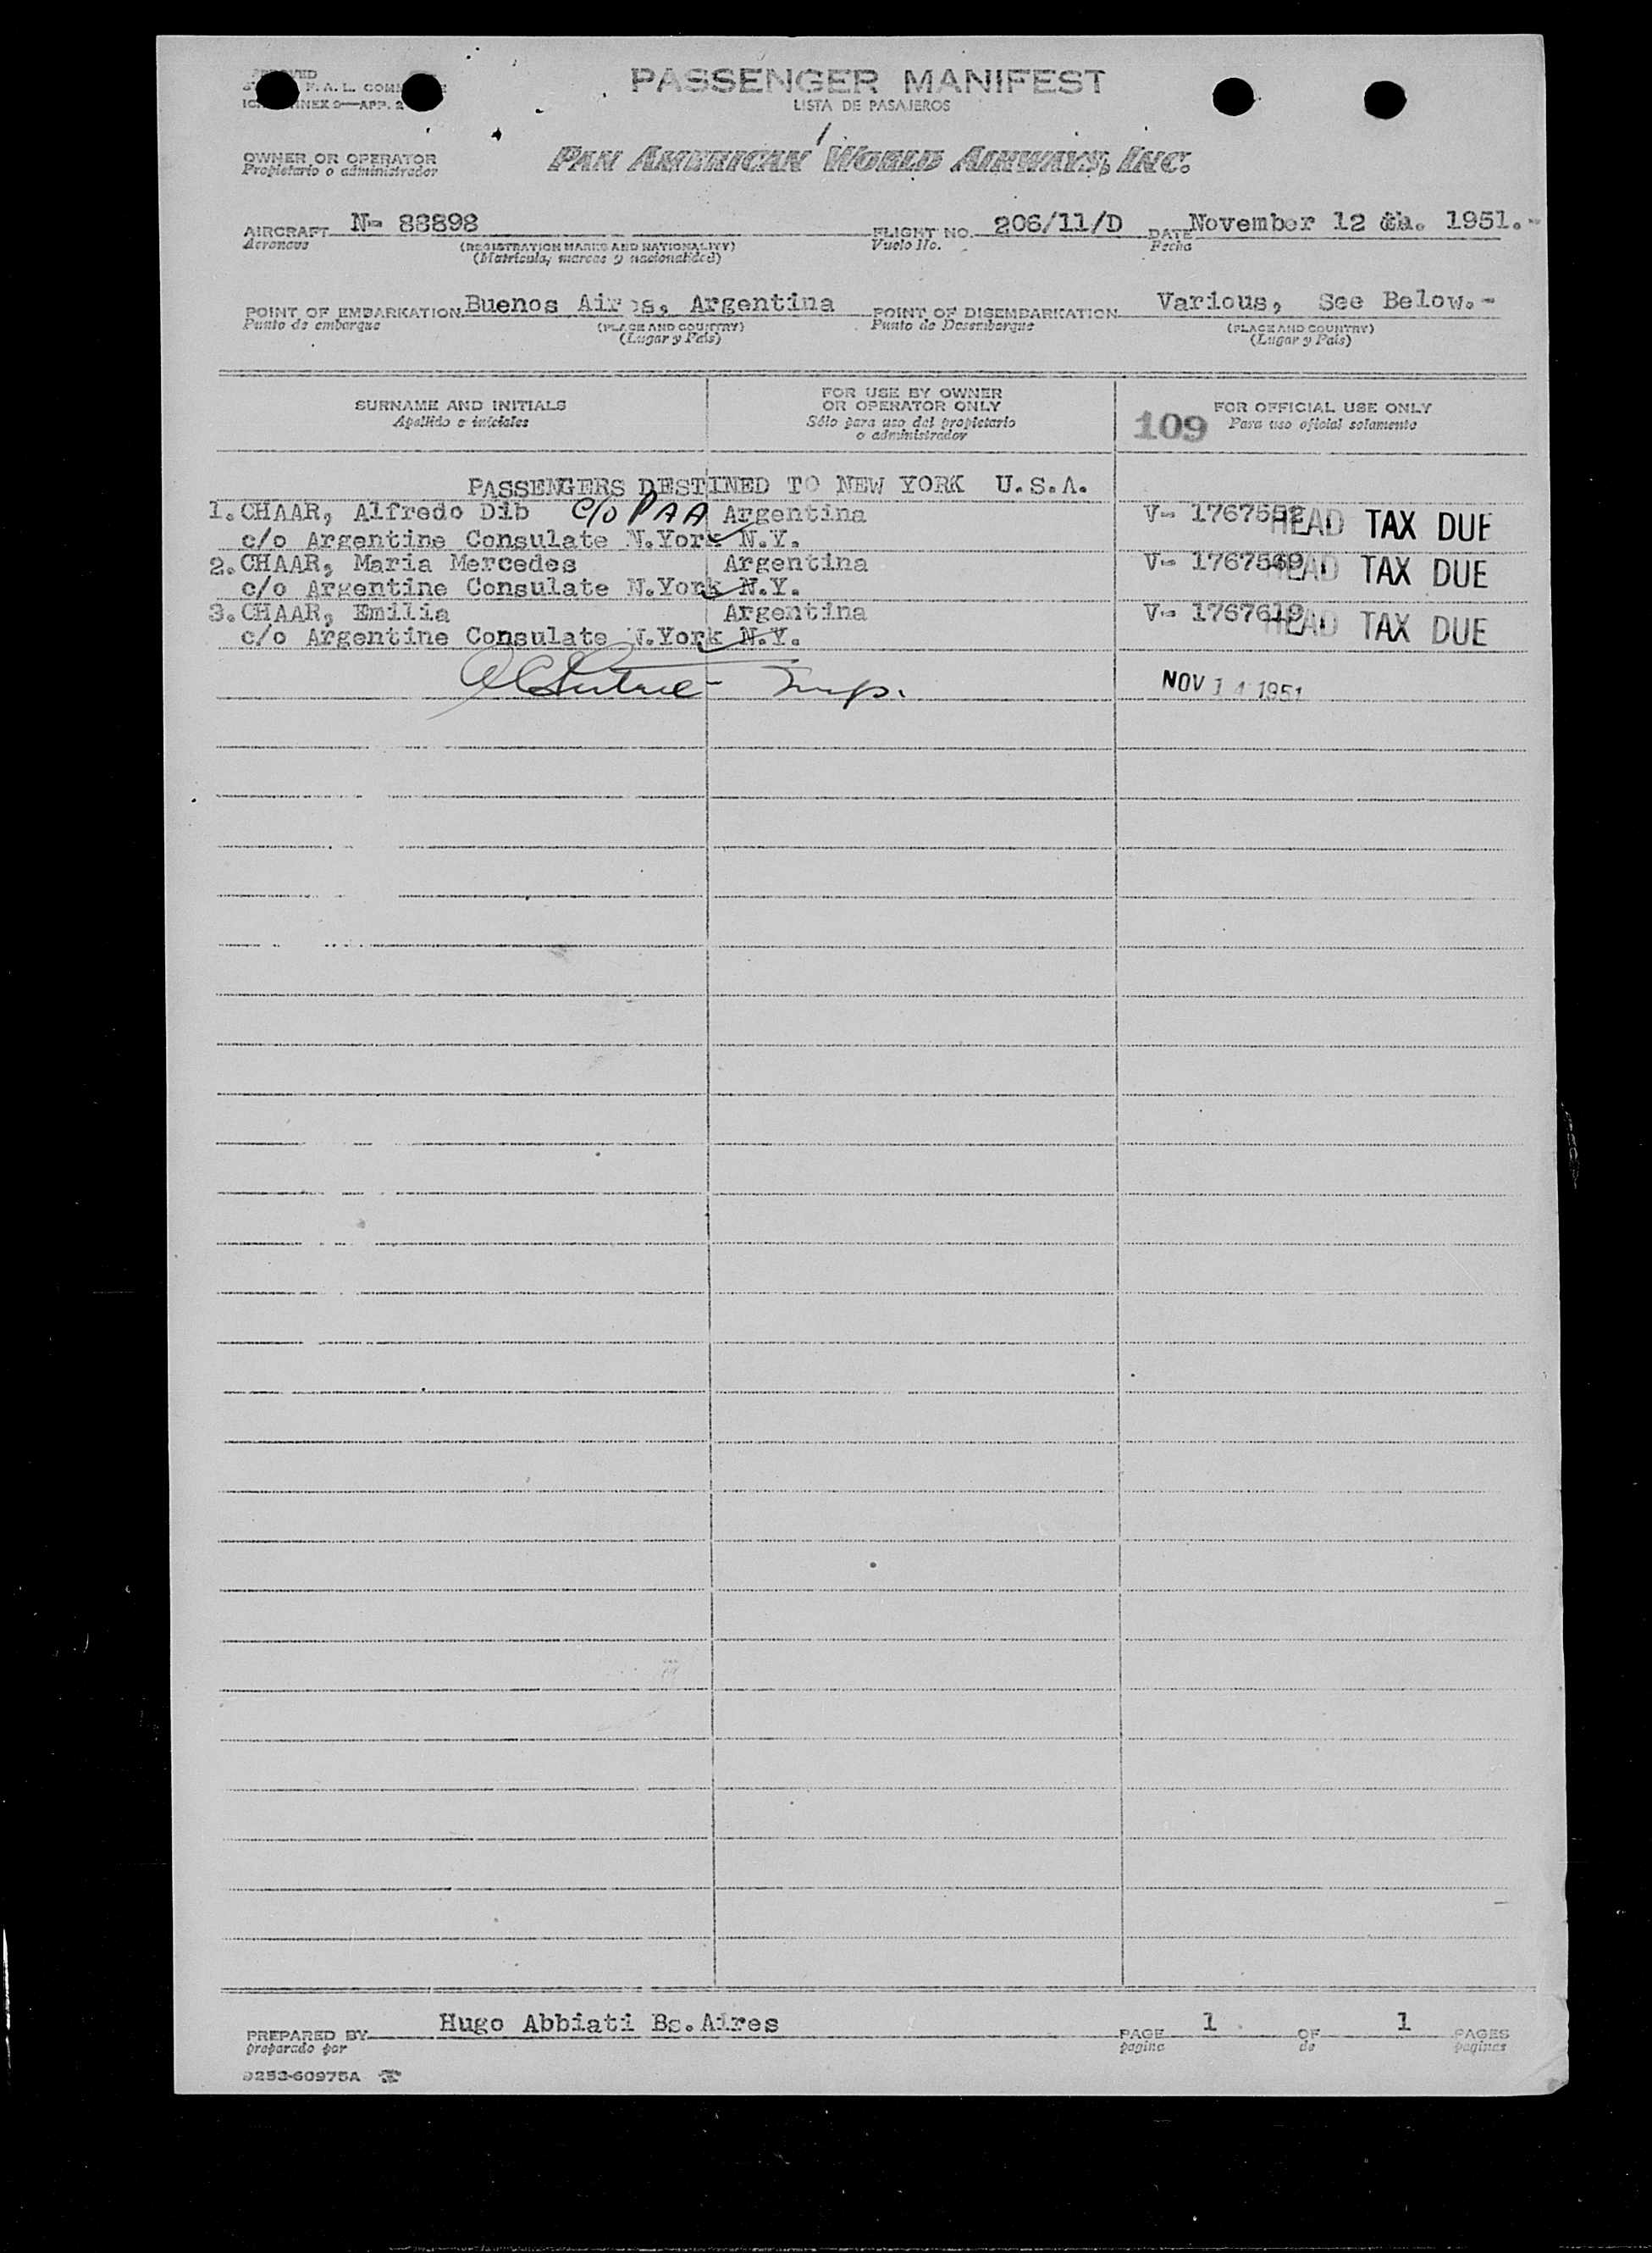 PASSENGER MANIFEST
LISTA DE PASAJEROS
F. A. L. COMM
ANNEX 9—APP. 2
OWNER OR OPERATOR
Propietario o administrador
PAN AMERICAN WORLD AIRWAYS, INC.
AIRCRAFT N- 88898 FLIGHT NO. 206/11/D DATE November 12 th. 1951.-
Aeronave (REGISTRATION MARKS AND NATIONALITY) Vuelo No. Fecha
(Matricula, marcas y nacionalidad)
POINT OF EMBARKATION Buenos Aires, Argentina POINT OF DISEMBARKATION Various, See Below.-
Punto de embarque (PLACE AND COUNTRY) Punto de Desembarque (PLACE AND COUNTRY)
(Lugar y Pais) (Lugar y Pais)
SURNAME AND INITIALS
Apellido e iniciales
FOR USE BY OWNER
OR OPERATOR ONLY
Sólo para uso del propietario
o administrador
109 FOR OFFICIAL USE ONLY
Para uso oficial solamente
PASSENGERS DESTINED TO NEW YORK U.S.A.
1. CHAAR, Alfredo Dib c/o PAA Argentina V- 1767552 HEAD TAX DUE
c/o Argentine Consulate N.York N.Y.
2. CHAAR, Maria Mercedes Argentina V- 1767569 HEAD TAX DUE
c/o Argentine Consulate N.York N.Y.
3. CHAAR, Emilia Argentina V- 1767619 HEAD TAX DUE
c/o Argentine Consulate N.York N.Y.
NOV 14 1951
PREPARED BY Hugo Abbiati Bs.Aires PAGE 1 OF 1 PAGES
preparado por pagina de paginas
9253-60975A